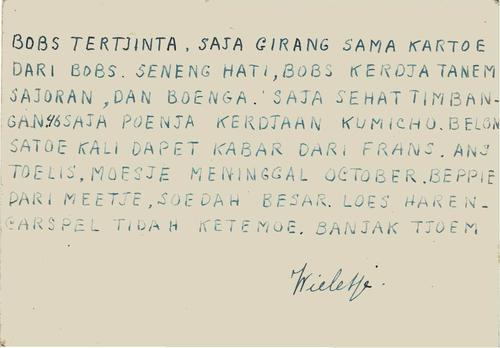 BOBS TERTJINTA, SAJA GIRANG SAMA KARTOE
DARI BOBS. SENENG HATI, BOBS KERDJA TANEM
SAJORAN, DAN BOENGA. SAJA SEHAT TIMBAN-
GAN 46 SAJA POENJA KERDJAAN KUMICHO. BELON
SATOE KALI DAPET KABAR DARI FRANS. ANS
TOELIS, MOESJE MENINGGAL OCTOBER. BEPPIE
DARI MEETJE, SOEDAH BESAR. LOES HAREN-
CARSPEL TIDAH KETEMOE. BANJAK TJOEM
Wieletje.